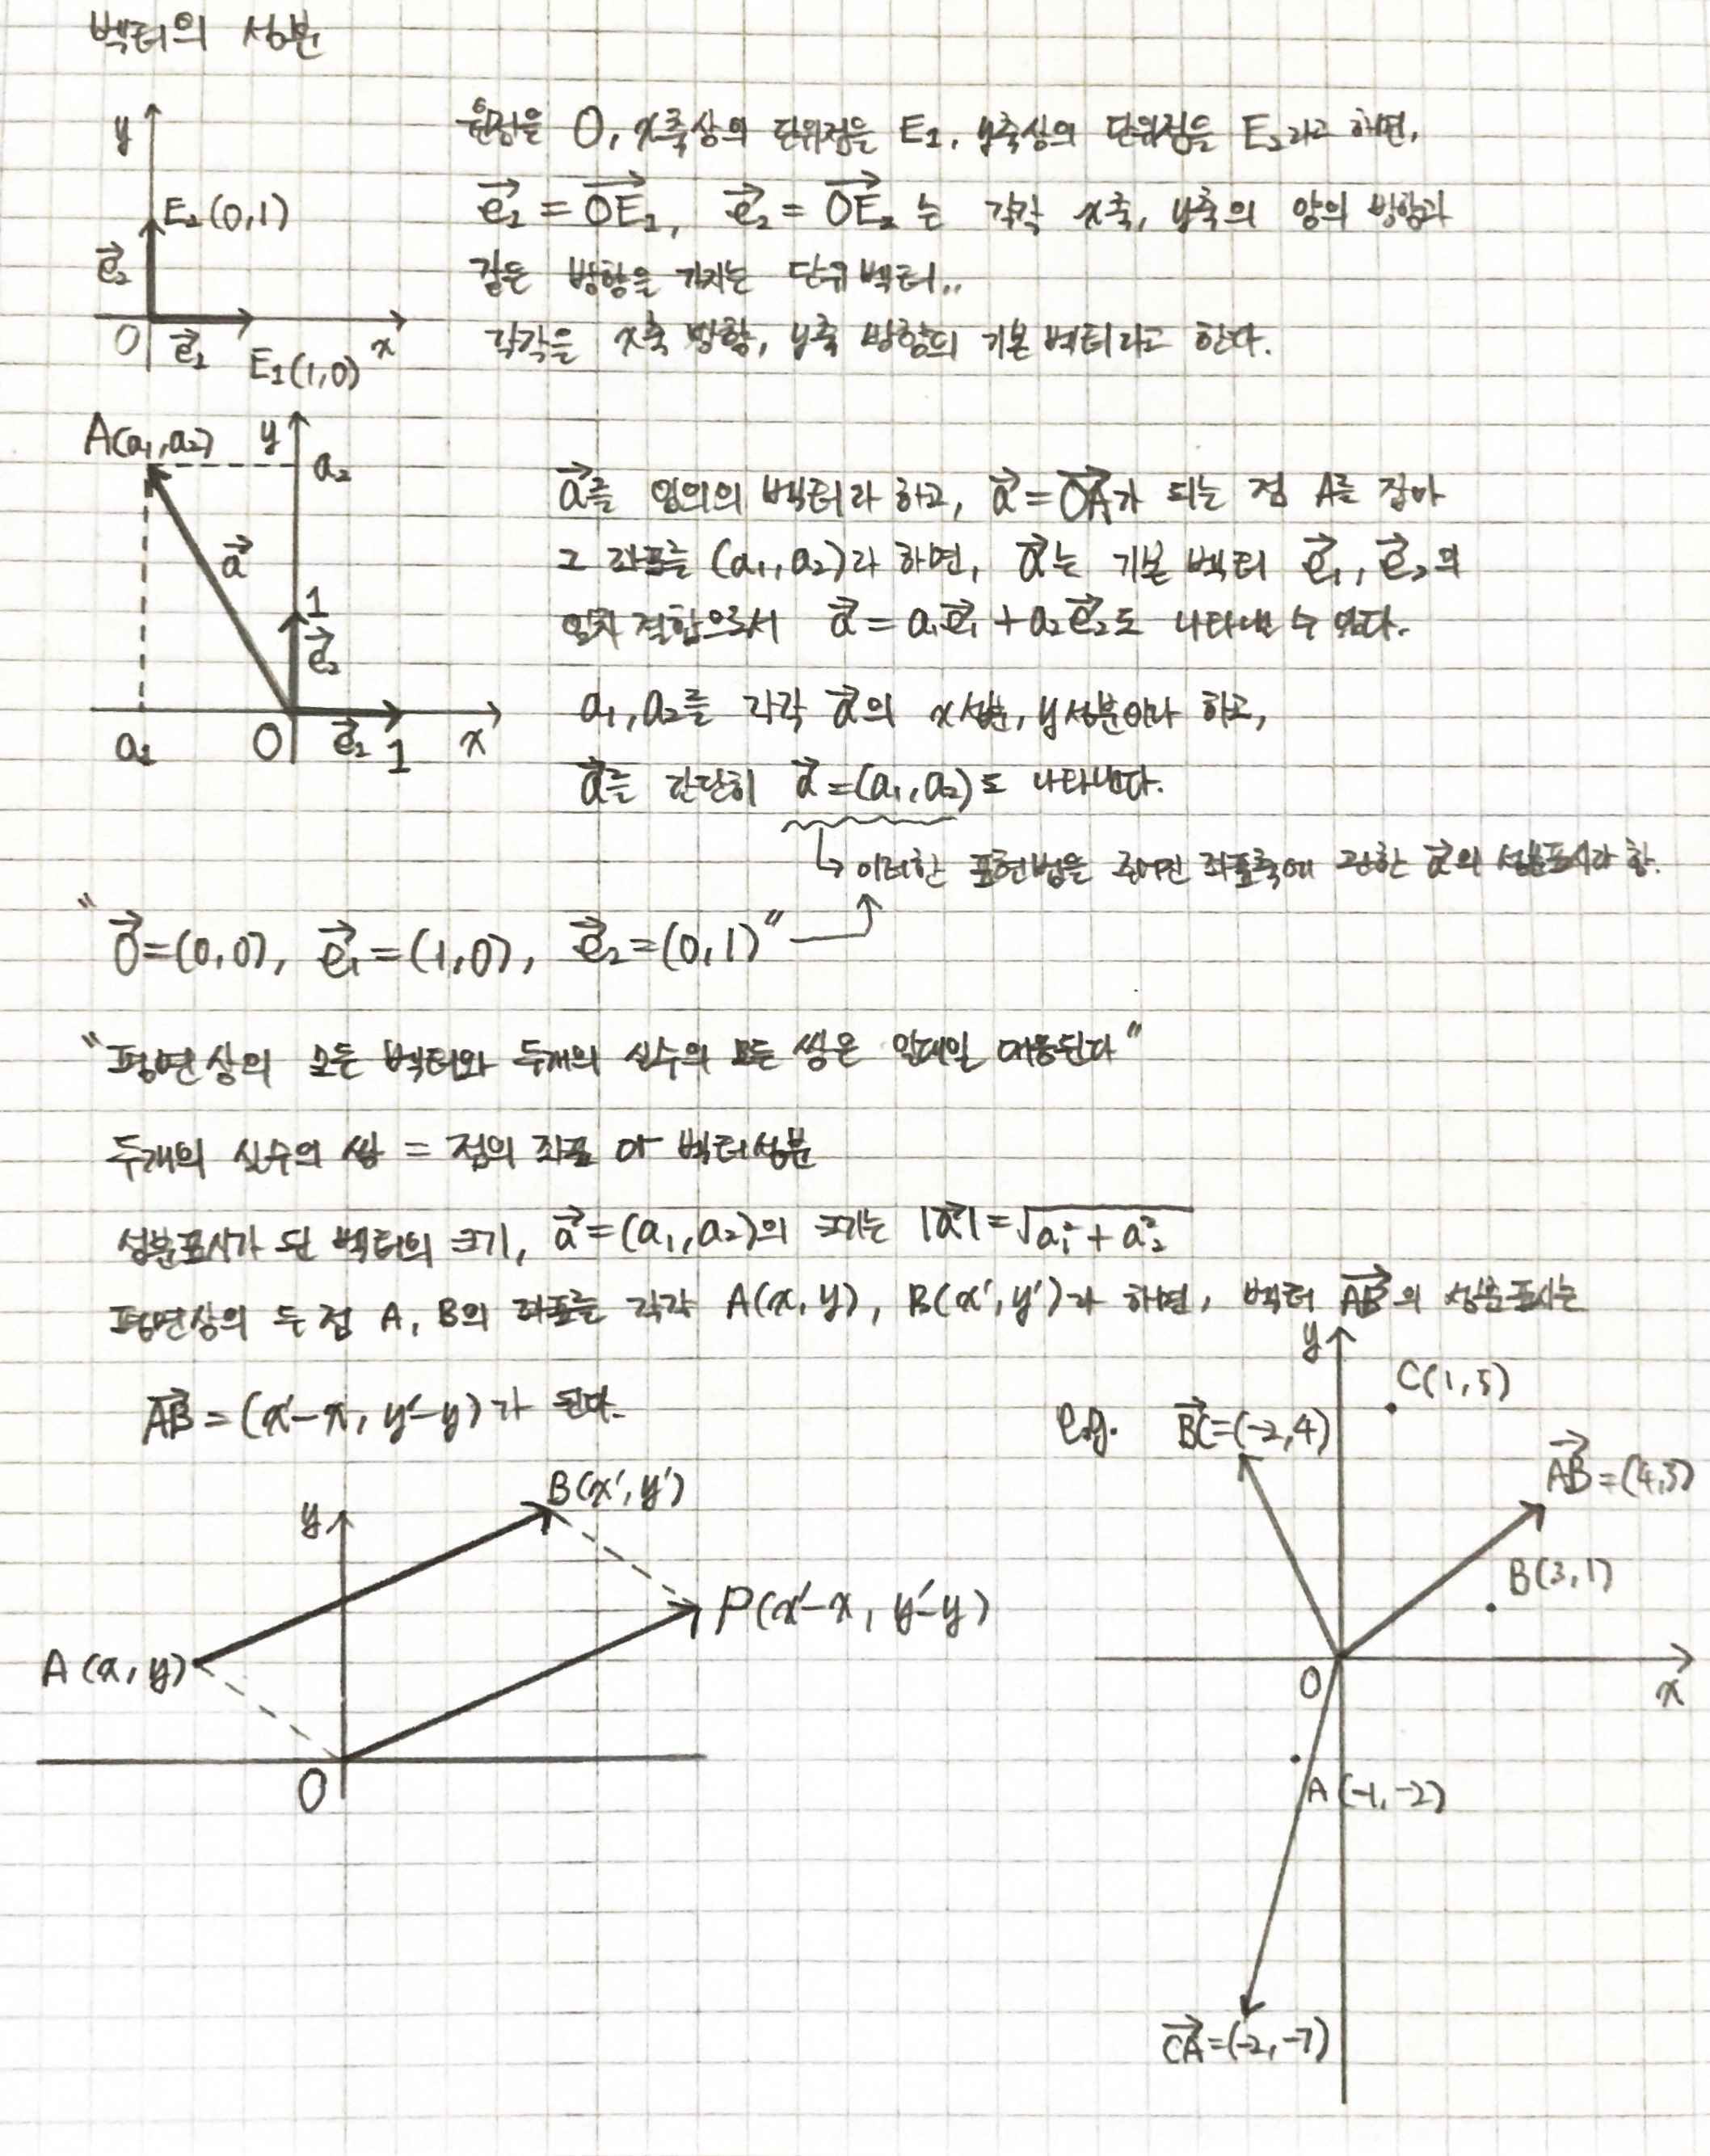 벡터의 성분
y
E₂(0,1)
e⃗₂
O
e⃗₁
E₁(1,0)
x
원점을 O, x축상의 단위점을 E₁, y축상의 단위점을 E₂라고 하면,
e⃗₁ = OE₁⃗, e⃗₂ = OE₂⃗ 는 각각 x축, y축의 양의 방향과
같은 방향을 가지는 단위 벡터..
각각을 x축 방향, y축 방향의 기본 벡터라고 한다.
A(a₁, a₂)
y
a₂
a⃗
1
e⃗₂
a₁
O
e⃗₁
1
x
a⃗를 임의의 벡터라 하고, a⃗ = OA⃗가 되는 점 A를 잡아
그 좌표를 (a₁, a₂)라 하면, a⃗는 기본 벡터 e⃗₁, e⃗₂의
일차 결합으로서 a⃗ = a₁e⃗₁ + a₂e⃗₂로 나타낼 수 있다.
a₁, a₂를 각각 a⃗의 x성분, y성분이라 하고,
a⃗를 간단히 a⃗ = (a₁, a₂)로 나타낸다.
↳ 이러한 표현법을 주어진 좌표축에 관한 a⃗의 성분표시라 함.
"0⃗ = (0,0), e⃗₁ = (1,0), e⃗₂ = (0,1)"
"평면상의 모든 벡터와 두개의 실수의 모든 쌍은 일대일 대응된다"
두개의 실수의 쌍 = 점의 좌표 or 벡터성분
성분표시가 된 벡터의 크기, a⃗ = (a₁, a₂)의 크기는 |a⃗| = √(a₁² + a₂²)
평면상의 두 점 A, B의 좌표를 각각 A(x, y), B(x', y')라 하면, 벡터 AB⃗의 성분표시는
AB⃗ = (x'-x, y'-y)가 된다.
y
B(x', y')
P(x'-x, y'-y)
A(x, y)
O
e.g.
y
C(1,5)
BC⃗=(-2,4)
AB⃗=(4,3)
B(3,1)
O
x
A(-1,-2)
CA⃗=(-2,-7)